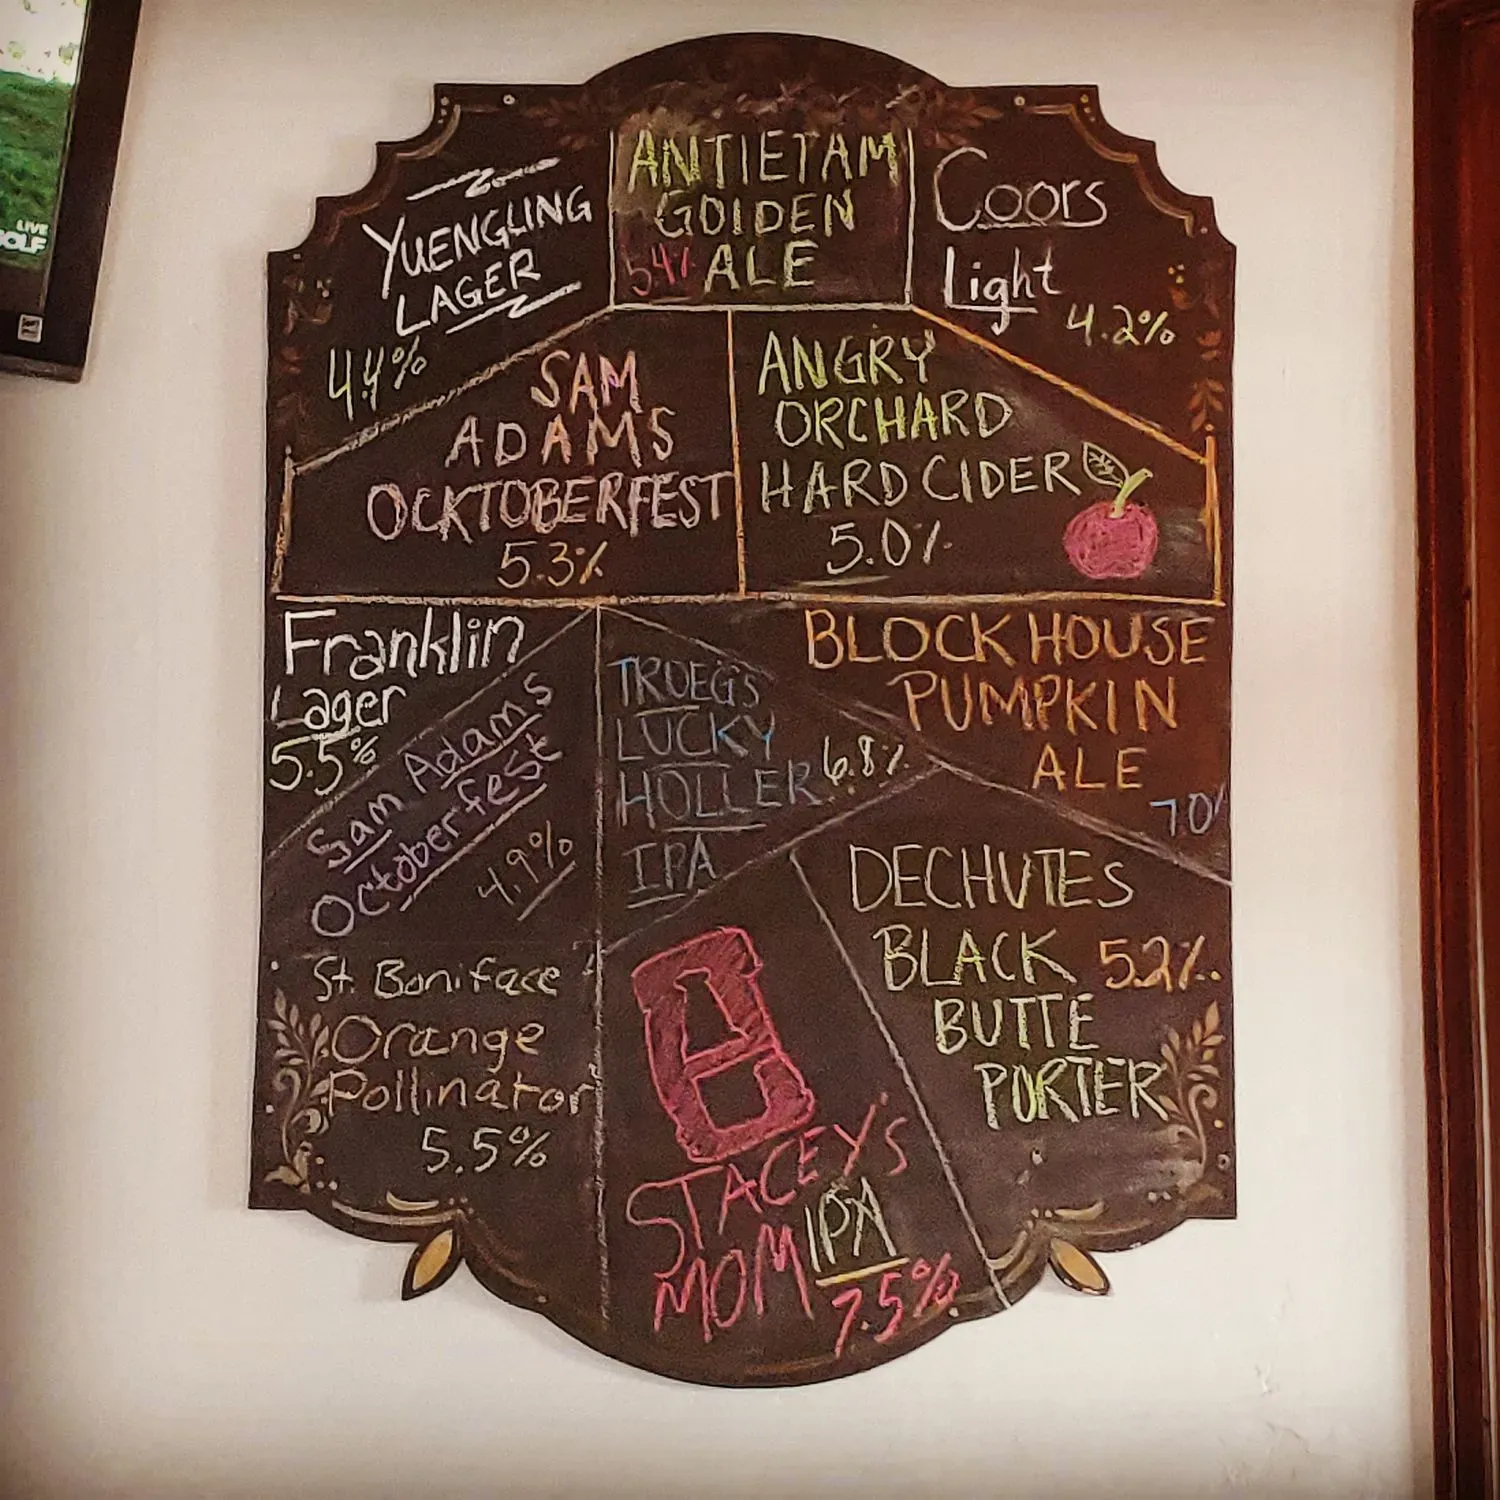 LIVE
GOLF
YUENGLING
LAGER
4.4%
ANTIETAM
GOLDEN
ALE
5.4%
Coors
Light
4.2%
SAM
ADAMS
OCKTOBERFEST
5.3%
ANGRY
ORCHARD
HARD CIDER
5.0%
Franklin
Lager
5.5%
Sam Adams
Octoberfest
4.9%
TROEGS
LUCKY
HOLLER
6.8%
IPA
BLOCK HOUSE
PUMPKIN
ALE
7.0%
St. Boniface
Orange
Pollinator
5.5%
STACEY'S
MOM IPA
7.5%
DECHUTES
BLACK
5.2%
BUTTE
PORTER